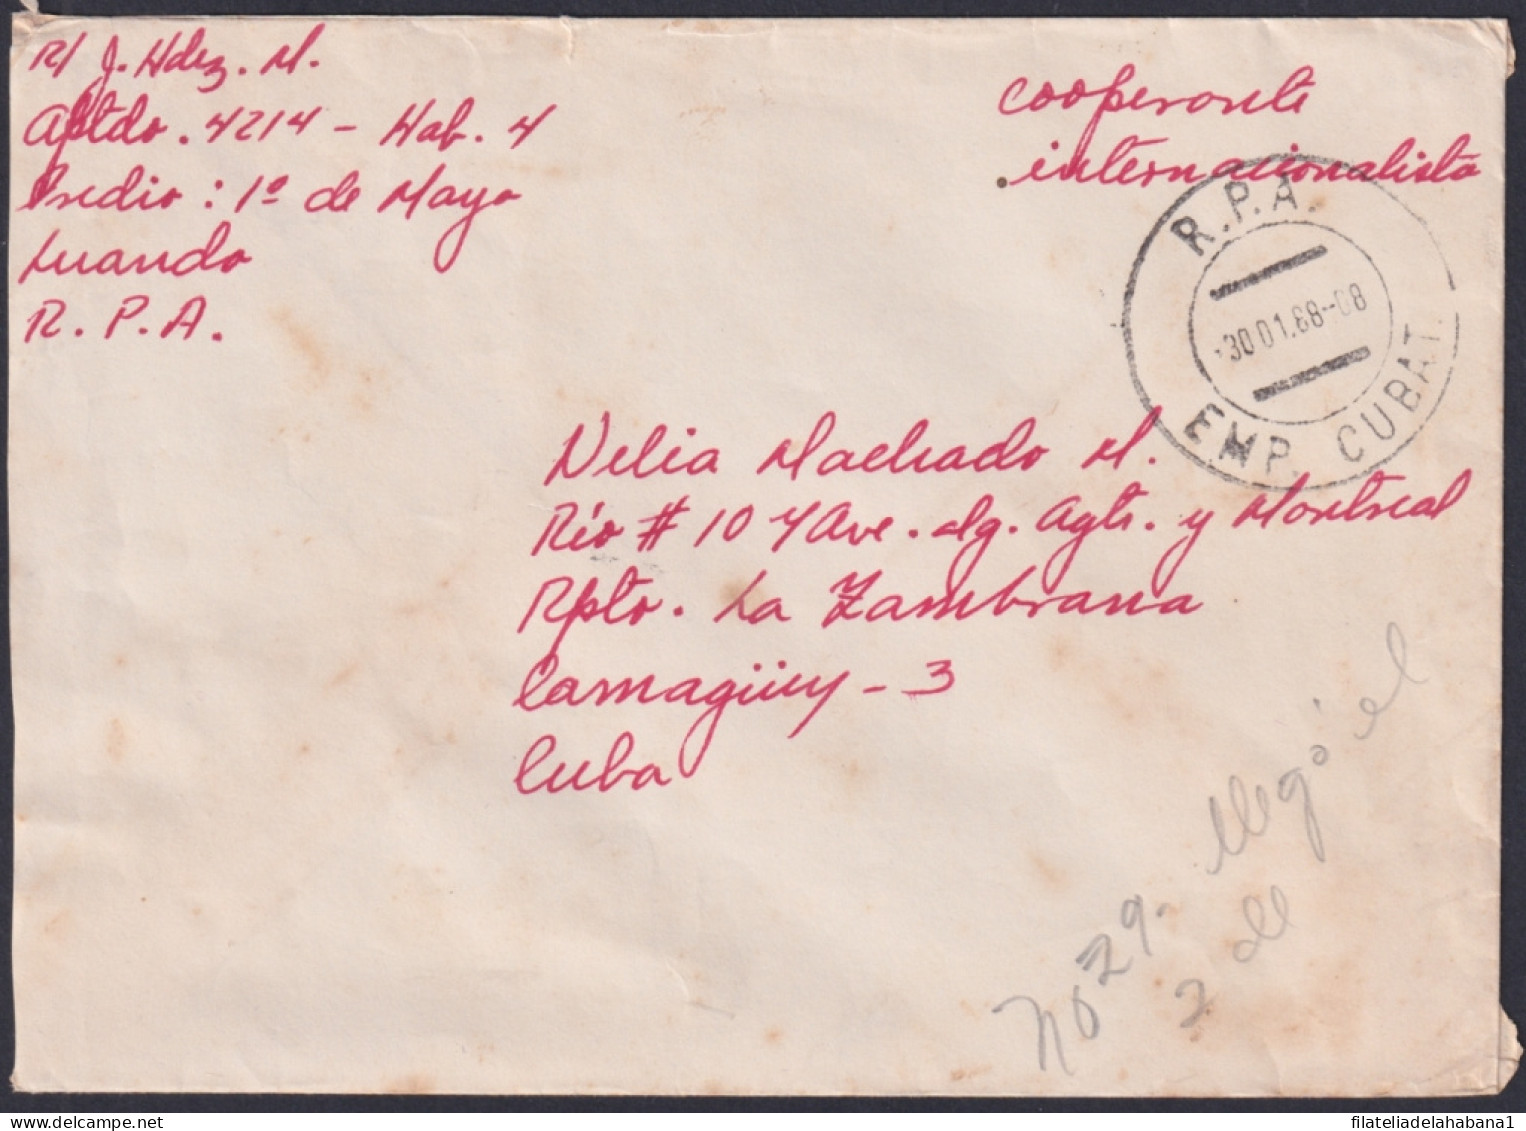 R/ J. Hdez. M.
Aptdo. 4214 - Hab. 4
Predio: 1º de Mayo
Luanda
R. P. A.
cooperante
internacionalista
R.P.A.
30 01.88--08
EMP. CUBAT.
Nelia Machado M.
Río # 10 7 Ave. Ig. Agte. y Montreal
Rpto. La Zambrana
Camagüey - 3
Cuba
No 29. llegó el
2 del
filateliadelahabana1